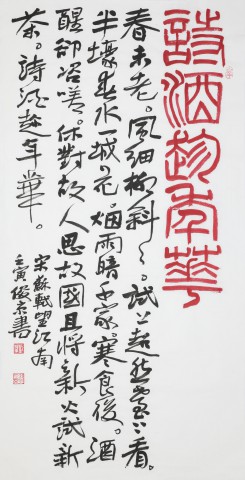 詩酒趁年華
春未老。風細柳斜〻。試上超然臺上看。
半壕春水一城花。烟雨暗千家寒食後。酒
醒卻咨嗟。休對故人思故國且將新火試新
茶。詩酒趁年華。
宋蘇軾望江南
壬寅俊京書